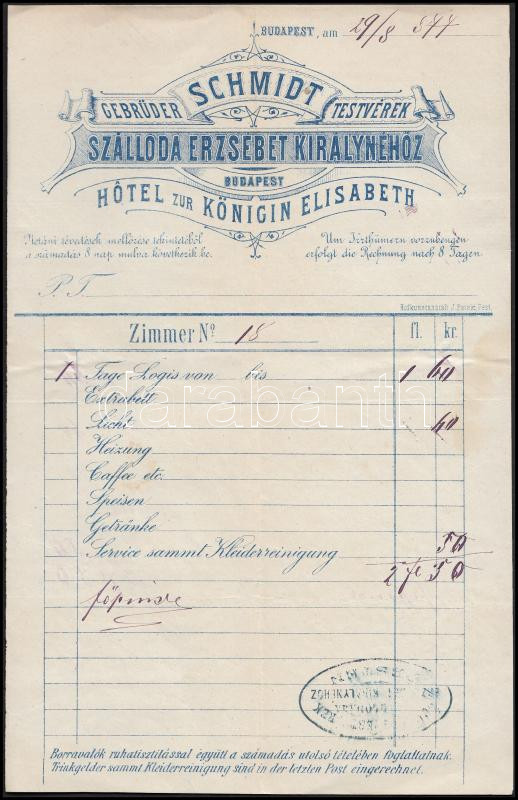 BUDAPEST, am 29/8 877
SCHMIDT
GEBRÜDER TESTVÉREK
SZÁLLODA ERZSÉBET KIRÁLYNÉHOZ
BUDAPEST
HÔTEL ZUR KÖNIGIN ELISABETH
Netáni tévedések mellőzése tekintetéből Um Irrthümern vorzubeugen
a számadás 8 nap mulva következik be. erfolgt die Rechnung nach 8 Tagen.
P. T.
Zimmer No. 18 fl. kr.
1 Tage Logis von bis 1 60
Extrabett
Licht 40
Heizung
Caffee etc.
Speisen
Getränke
Service sammt Kleiderreinigung 50
2 fl 50
darabanth
Borravalók ruhatisztitással együtt a számadás utolsó tételében foglaltatnak.
Trinkgelder sammt Kleiderreinigung sind in der letzten Post eingerechnet.